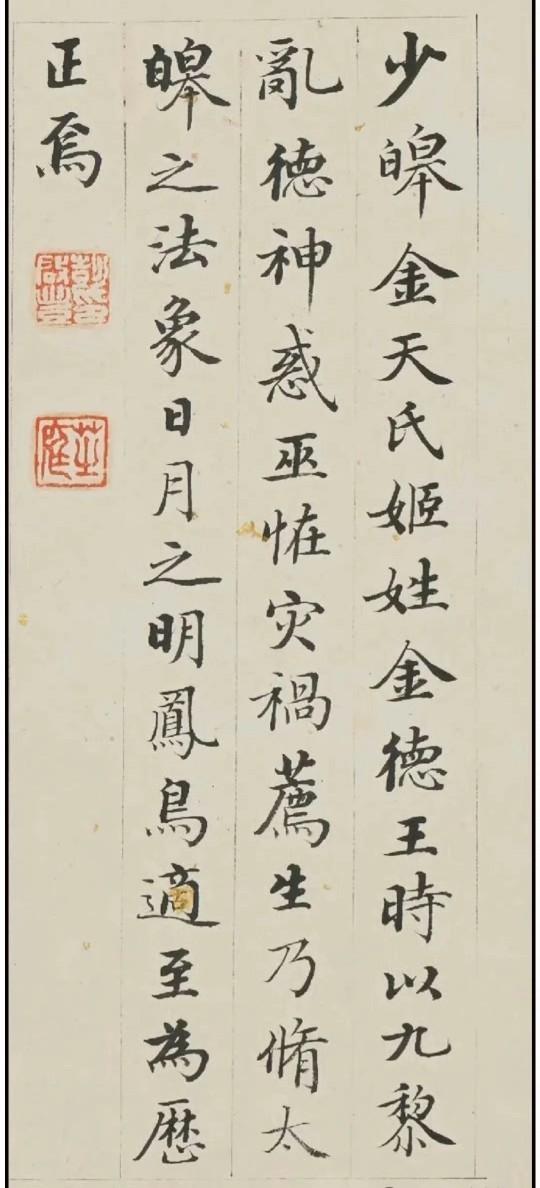 少皞金天氏姬姓金德王時以九黎
亂德神惑巫恠灾禍薦生乃脩太
皞之法象日月之明鳳鳥適至為歷
正焉